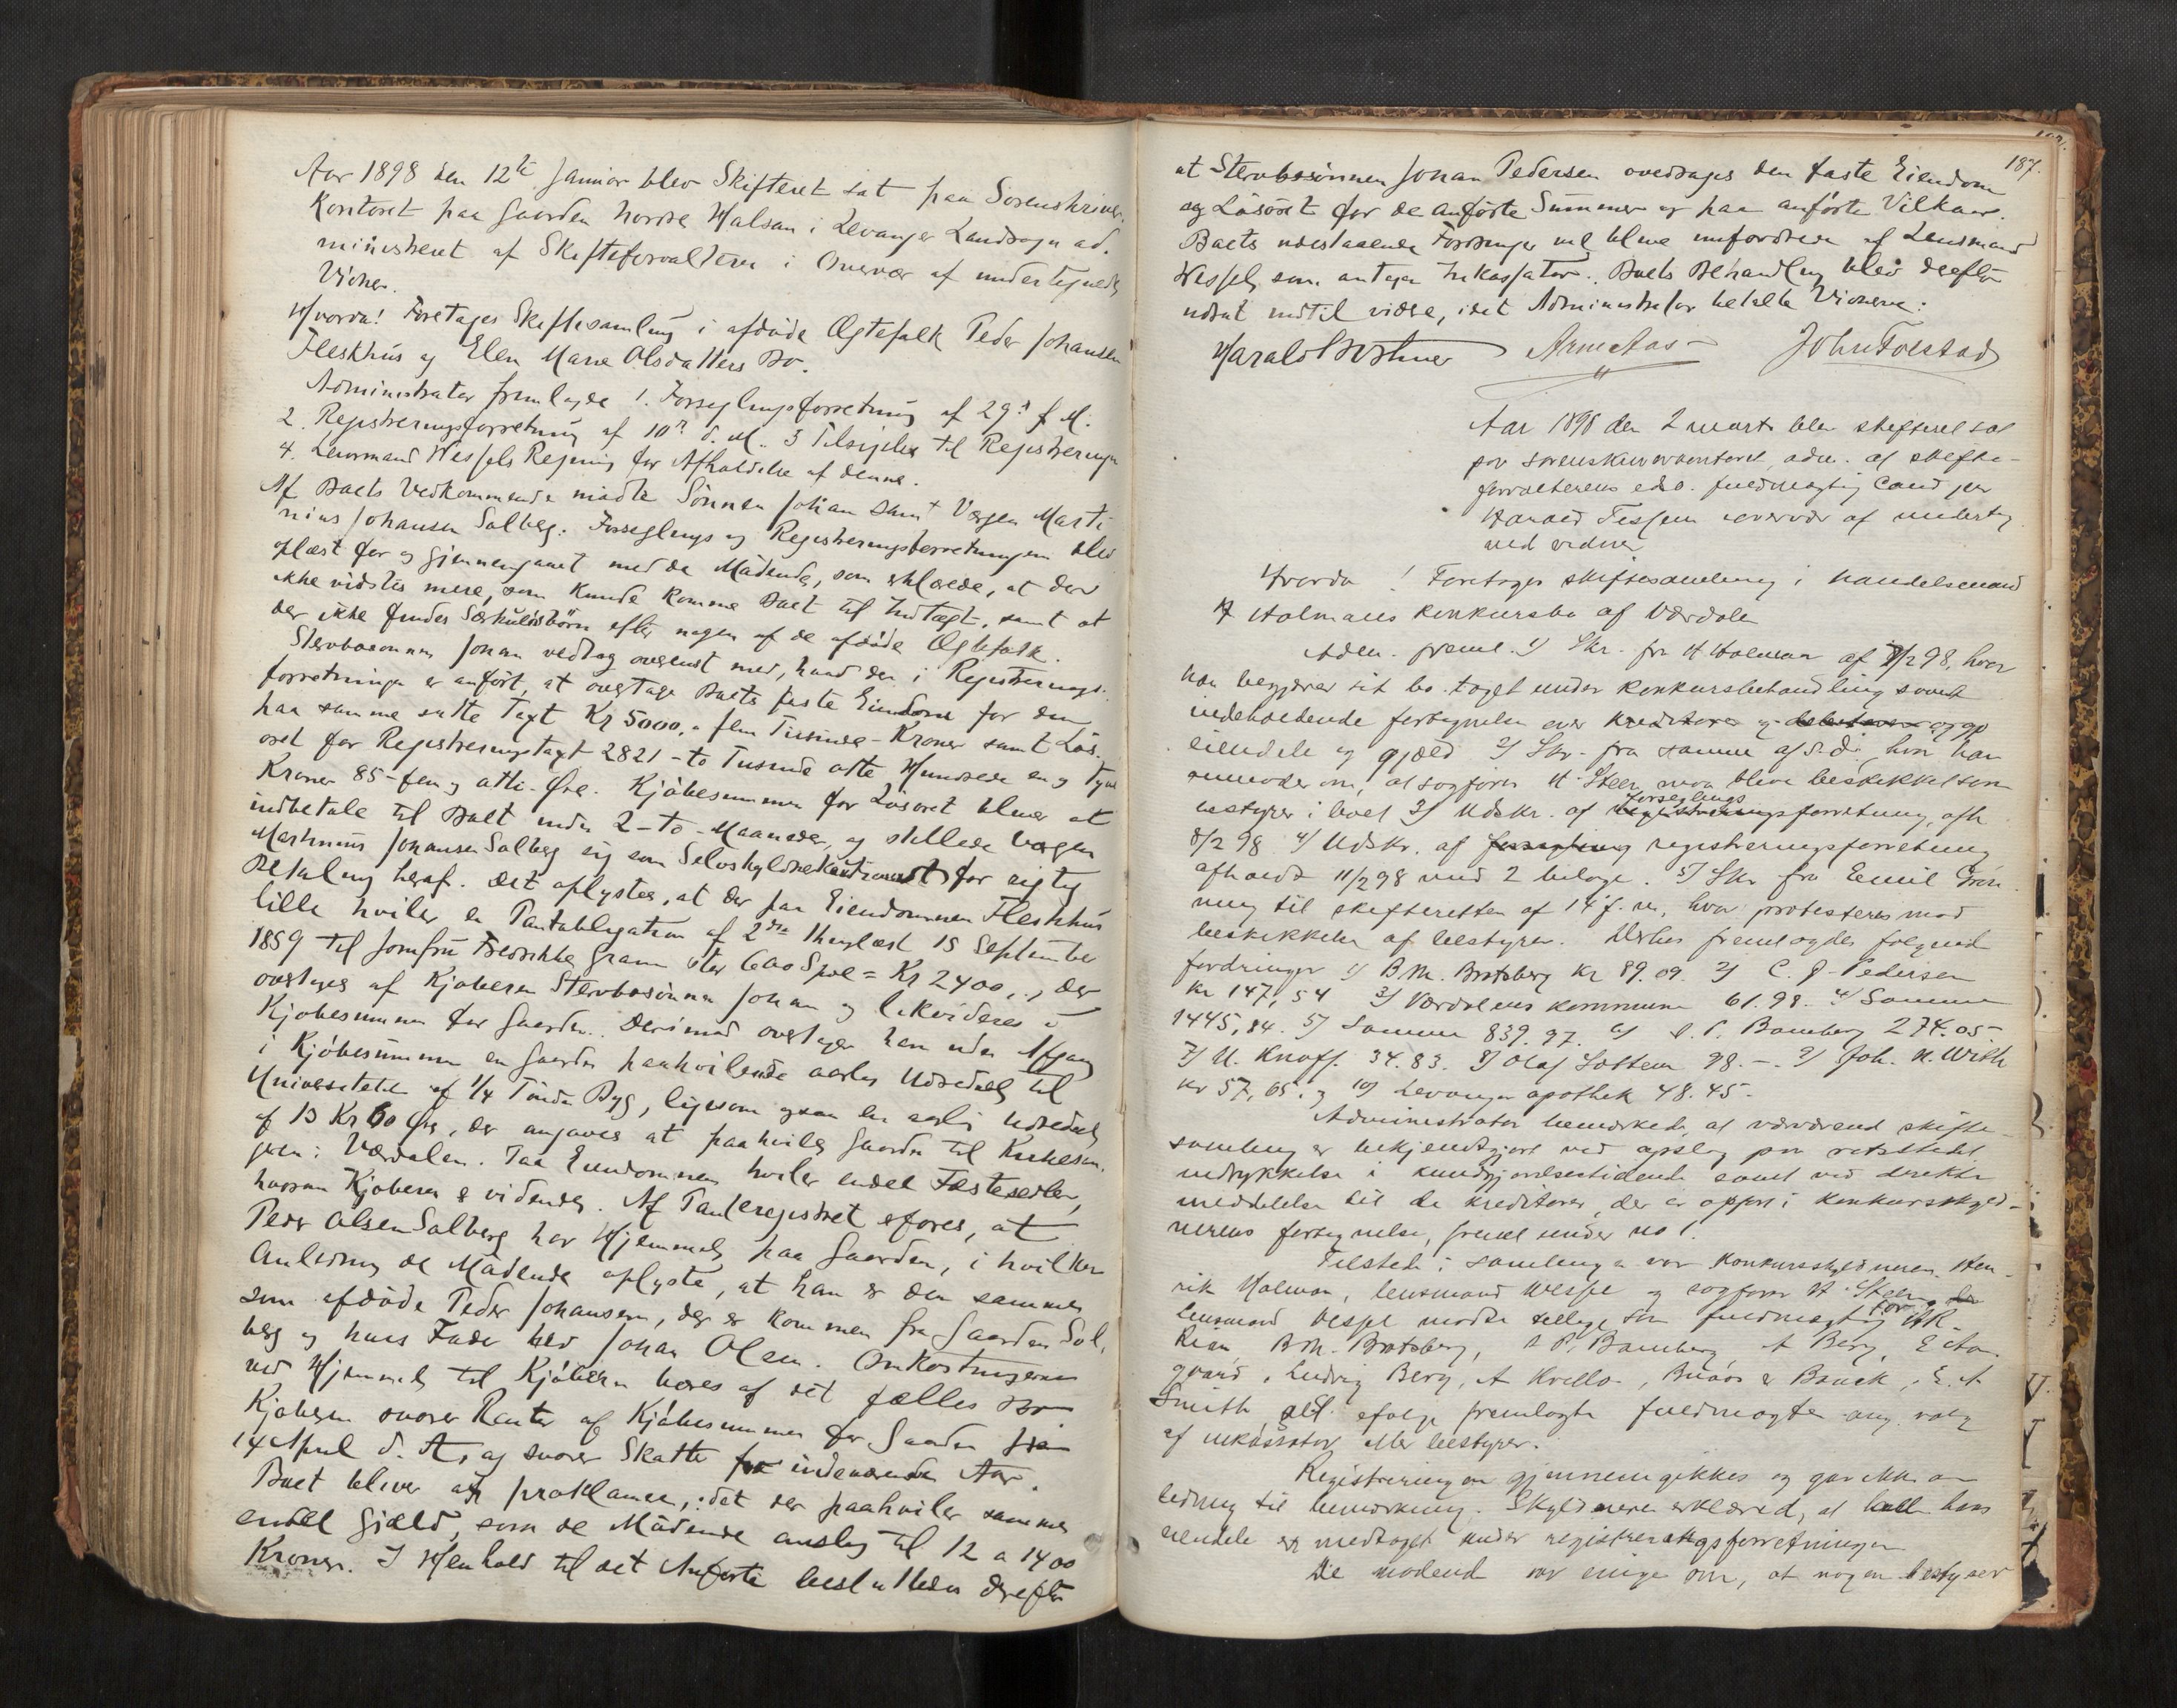 Aar 1898 den 12te Januar blev Skifteret sat paa Sorenskriver-
Kontoret paa Gaarden Nordre Halsan i Levanger Landsogn ad-
ministreret af Skifteforvalteren i Overvær af undertegnede
Vidner.
Hvorda! Foretages Skiftesamling i afdøde Ægtefolk Peder Johansen
Fleskhus og Elen Marie Olsdatters Bo.
Administrator fremlagde 1. Forseglingsforretning af 29de f. M.
2. Registreringsforretning af 10de d. M. 3 Tilsigelse til Registreringen
4. Lensmand Wessels Regning for Afholdelse af denne.
Af Boets Vedkommende mødte Sønnen Johan samt Værgen Marti-
nius Johansen Salberg. Forseglings og Registreringsforretningen blev
oplæst for og gjennemgaaet med de Mødende, som erklærede, at der
ikke vidstes mere, som kunde komme Boet til Indtægt, samt at
der ikke findes Særkulsbørn efter nogen af de afdøde Ægtefolk.
Stervbosønnen Johan vedtog overenst med, hvad der i Registrerings-
forretningen er anført, at overtage Boets faste Eiendom for den
paa samme satte Taxt Kr 5000,- fem Tusinde - Kroner samt Løs-
øret for Registreringstaxt 2821 - to Tusinde otte Hundrede en og Tyve
Kroner 85 - fem og otti - Øre. Kjøbesummen for Løsøret bliver at
indbetale til Boet inden 2 - to - Maaneder, og stillede Værgen
Martinius Johansen Salberg sig som Selvskyldnerkautionist for rigtig
Betaling heraf. Det oplystes, at der paa Eiendommen Fleskhus
lille hviler en Pantobligation af 2den thinglæst 15 September
1859 til Jomfru Fredrikke Gram stor 600 Spd = Kr 2400,-, der
overtages af Kjøberen Stervbosønnen Johan og likvideres i
Kjøbesummen for Gaarden. Derimod overtager han uden Afgang
i Kjøbesummen en Gaarden paahvilende aarlig Udredsel til
Universitetet af 1/4 Tønde Byg, ligesom ogsaa en aarlig Udredsel
af 13 Kr 60 Øre, der angaves at paahvile Gaarden til Kirkesan-
gren i Værdalen. Paa Eiendommen hviler endel Fæstesedler,
hvorom Kjøberen er vidende. Af Panteregistret erfores, at
Peder Olsen Salberg har Hjemmel paa Gaarden, i hvilken
Anledning de Mødende oplyste, at han er den samme
som afdøde Peder Johansen, der er kommen fra Gaarden Sal-
berg og hvis Fader hed Johan Olsen. Omkostningerne
ved Hjemmel til Kjøberen bæres af det fælles Bo
Kjøberen svarer Renter af Kjøbesummen for Gaarden fra
14 April d. A., og svarer Skatte for indeværende Aar.
Boet bliver at proklamere, idet der paahviler samme
endel Gjæld, som de Mødende anslog til 12 a 1400
Kroner. I Henhold til det Anførte besluttedes derefter
187.
at Stervbosønnen Johan Pedersen overdrages den faste Eiendom
og Løsøret for de anførte Summer og paa anførte Vilkaar.
Boets udestaaende Fordringer vil blive indfordrede af Lensmand
Wessel, som antages Inkassator. Boets Behandling blev derefter
udsat indtil videre, idet Administrator betalte Vidnerne:
Harald Bothner Arne Aas John Folstad
Aar 1898 den 2 marts blev skifteret sat
paa sorenskriverkontoret, adm. af skifte-
forvalterens eds. fuldmægtig Cand jur
Harald Tessem i overvær af underteg-
ned vidner
Hvorda! Foretages skiftesamling i handelsmand
H Holmans konkursbo af Værdalen
Adm. freml. 1) Skr. fra H Holman af 8/2 98, hvor
han begjærer sit bo taget under konkursbehandling samt
indeholdende fortegnelse over kreditorer og debitorer og op
eiendele og gjæld 2) Skr. fra samme af s. d., hvor han
anmoder om, at sagfører H Steen maa blive beskikket som
bestyrer i boet 3) Udskr. af registrerings Forseglings forretning, afh
8/2 98 4) Udskr. af forsegling registreringsforretning
afholdt 11/2 98 med 2 bilage. 5) Skr fra Eemil Grøn-
ning til skifteretten af 14 f. m., hvor protesteres mod
beskikkelse af bestyrer. Derhos fremlagdes følgende
fordringer 1) B. M. Bratsberg Kr 89.09. 2) C. J. Pedersen
Kr 147,54 3) Værdalens kommune 61.98. 4) Samme
1445,84. 5) Samme 839.97. 6) A. P. Bamberg 274.05.
7) U. Knoff. 34.83. 8) Olaf Lottem 98.-. 9) Joh. N. With
Kr 57,65. og 10) Levanger apothek 48.45.
Administrator bemærkede, at nærværende skifte-
samling er bekjendtgjort ved opslag paa retsstedet,
indrykkelse i kundgjørelsestidende samt ved direkte
meddelelse til de kreditorer, der er opført i konkursskyld-
nerens fortegnelse, freml under no 1.
Tilstede i samlingen var konkursskyldneren Hen-
rik Holman, lensmand Wessel og sagfører H. Steen.
lensmand Wessel mødte tillige som fuldmægtig for
B. M. Bratsberg, A P. Bamberg A Berg
Ludvig Berg, A Kvello, Buaas & Brauck, E. A
Smith alt ifølge fremlagte fuldmagter ang. valg
af inkassator eller bestyrer.
Registreringen gjennemgikkes og gav ikke an-
ledning til bemærkning. Skyldneren erklæred, at alle hans
eiendele er medtaget under registreringsforretningen
De mødende var enige om, at nogen bestyrer